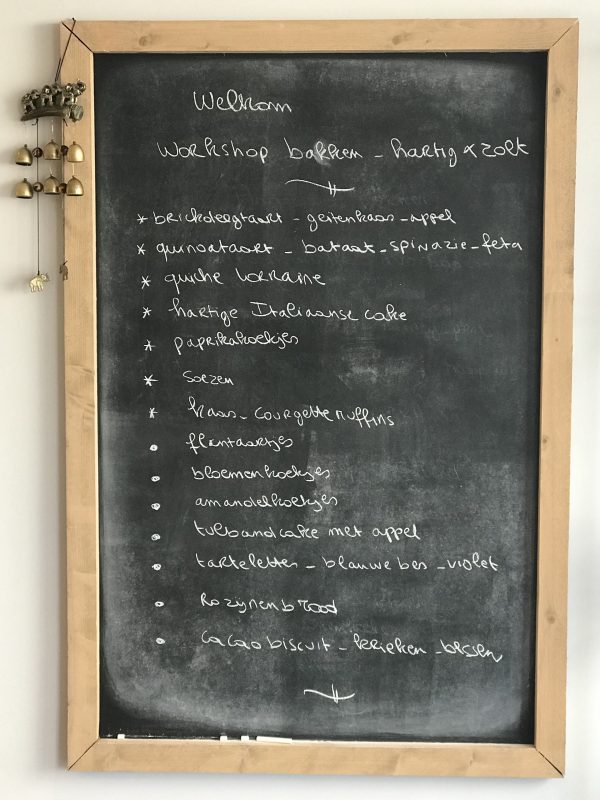 Welkom
Workshop bakken - hartig & zoet
* brickdeegtaart - geitenkaas - appel
* quinoataart - bataat - spinazie - feta
* quiche lorraine
* hartige Italiaanse cake
* paprikakoekjes
* soezen
* kaas - courgettemuffins
• flantaartjes
• bloemenkoekjes
• amandelkoekjes
• tulbandcake met appel
• tartelettes - blauwe bes - violet
• Rozijnenbrood
• cacaobiscuit - krieken - bessen